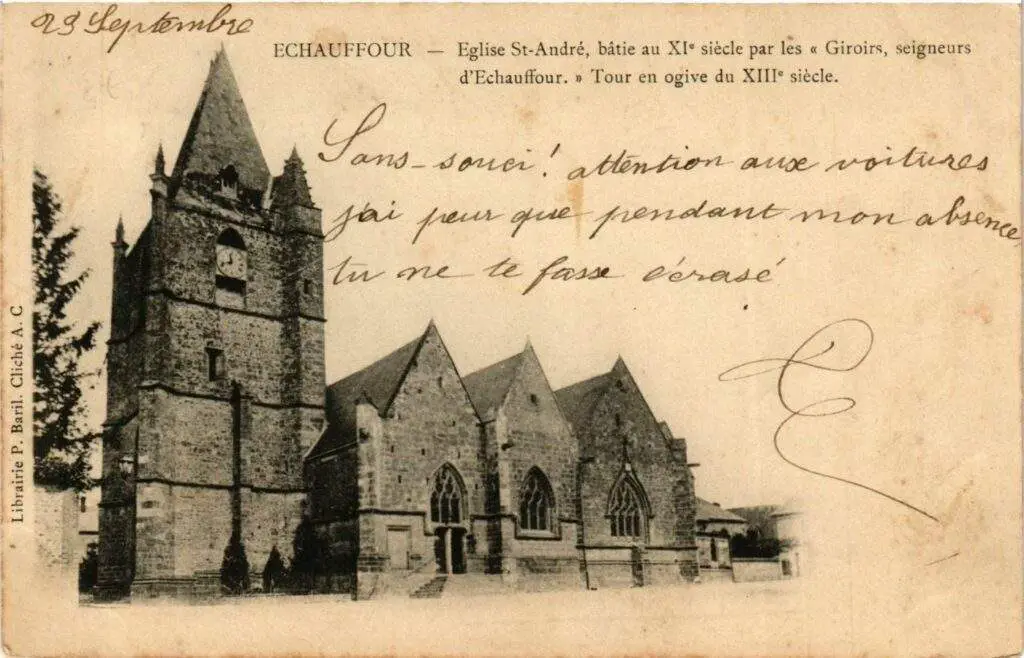 23 Septembre
ECHAUFFOUR — Eglise St-André, bâtie au XIe siècle par les « Giroirs, seigneurs
d'Echauffour. » Tour en ogive du XIIIe siècle.
Sans-souci! attention aux voitures
j'ai peur que pendant mon absence
tu ne te fasse écrasé
E
Librairie P. Baril. Cliché A. C